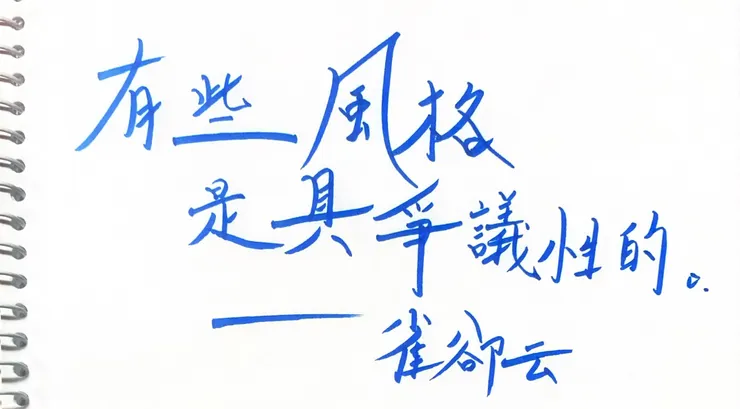 有些風格
是具爭議性的。
——雀卻云